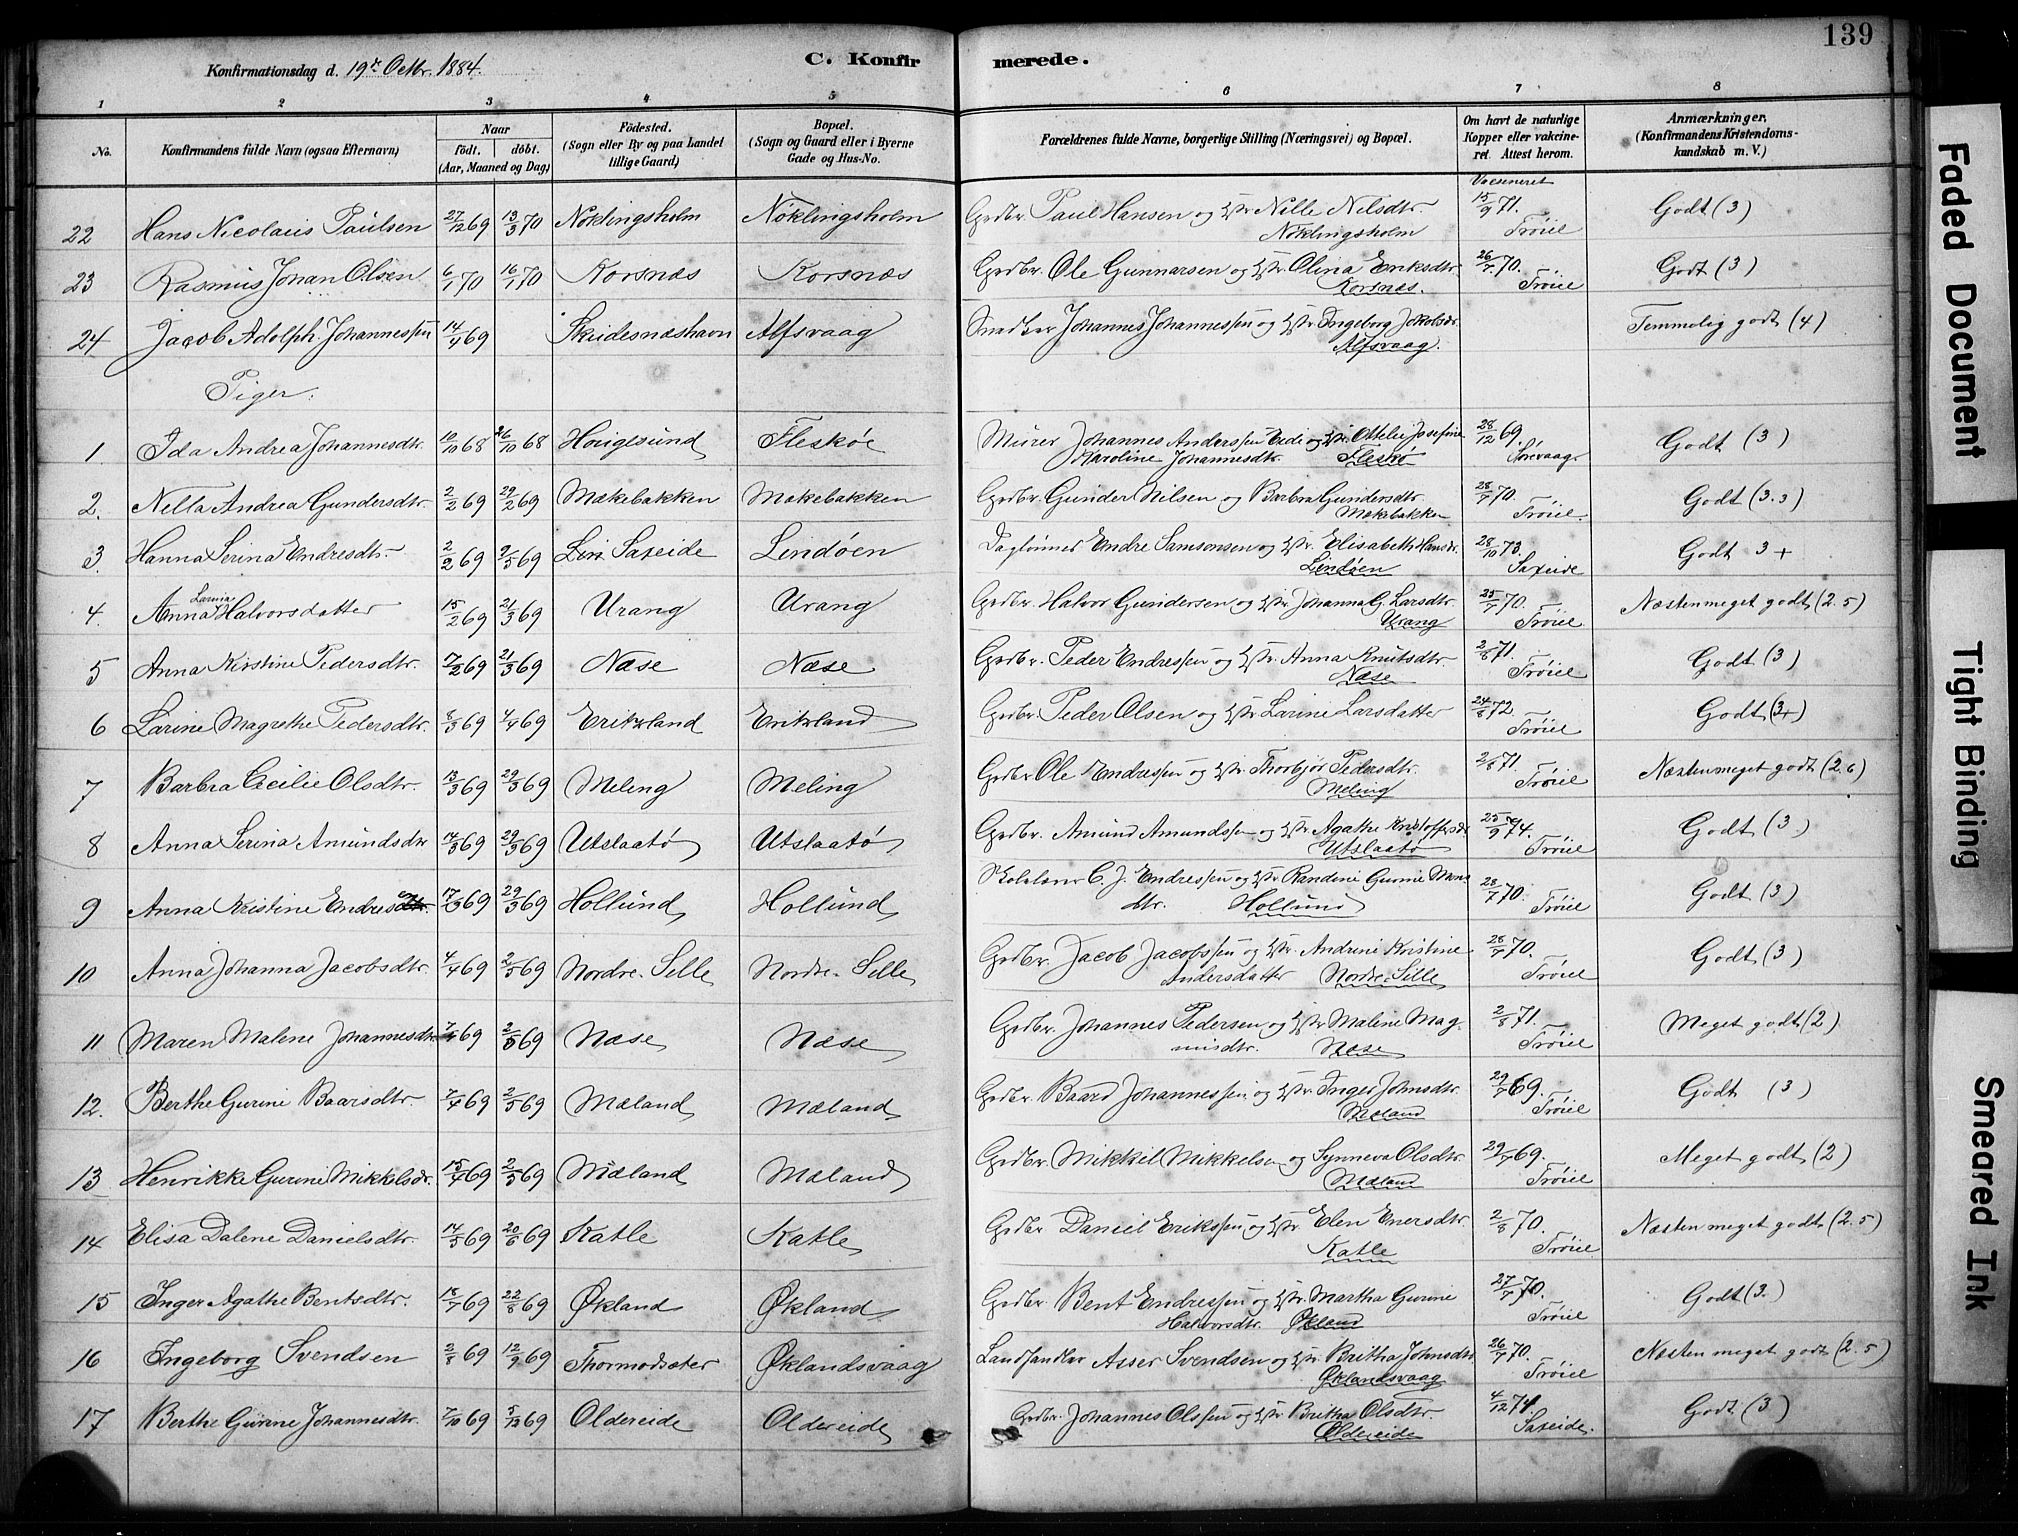 139
Konfirmationsdag d. 19de Octbr. 1884.
C. Konfirmerede.
1 2 3 4 5 6 7 8
No. Konfirmandens fulde Navn (ogsaa Efternavn) Naar födt. döbt. (Aar, Maaned og Dag) Födested. (Sogn eller By og paa Landet tillige Gaard) Bopæl. (Sogn og Gaard eller i Byerne Gade og Hus-No. Forældrenes fulde Navne, borgerlige Stilling (Næringsvei) og Bopæl. Om havt de naturlige Kopper eller vakcineret. Attest herom. Anmærkninger. (Konfirmandens Kristendomskundskab m. V.)
Vaccineret
22 Hans Nicolaus Paulsen 27/12 69 13/3 70 Nöklingsholm Nöklingsholm Grdbr. Paul Hansen og Hstr. Nille Nilsdtr. Nöklingsholm 15/9 71. Tröiel Godt (3)
23 Rasmus Johan Olsen 6/1 70 16/1 70 Korsnæs Korsnæs Grdbr. Ole Gunnarsen og Hstr. Olina Eriksdtr. Korsnæs. 26/7 70. Tröiel Godt (3)
24 Jacob Adolph Johannessen 14/4 69 Skudesnæshavn Alfsvaag Snedker Johannes Johannessen og Hstr. Ingeborg Jakobsdr. Alfsvaag. Temmelig godt (4)
Piger.
1. Ida Andrea Johannesdtr. 10/10 68 26/10 68 Hougesund Fleskøe Murer Johannes Anderssen Eide og Hstr. Ottelie Josefine Karoline Johannesdtr. Fleskø 28/12 69. Sørevaag Godt (3)
2. Nella Andrea Gundersdtr. 2/2 69 29/2 69 Mækebakken Mækebakken Grdbr. Gunder Nilsen og Barbra Gundersdtr. Mækebakken 28/7 70. Tröiel. Godt (3.3)
3. Hanna Serina Endresdtr. 2/2 69 9/5 69 Saxeide Lindöen Daglønner Endre Samsonsen og Hstr. Elisabeth Hansdr. Lindöen 28/10 73. Saxeide Godt 3+
4. Anna Lamia Halvorsdatter 15/2 69 21/3 69 Urang Urang Grdbr. Halvor Gundersen og Hstr. Johanna G. Larsdtr. Urang 25/7 70. Tröiel Næsten meget godt (2.5)
5 Anna Kirstine Pedersdtr. 7/2 69 21/3 69 Næse Næse Grdbr. Peder Endressen og Hstr. Anna Knutsdtr. Næse 2/8 71. Tröiel Godt (3)
6 Larine Magrethe Pedersdtr. 8/3 69 4/4 69 Eriksland Eriksland Grdbr. Peder Olsen og Hstr. Larine Larsdatter 24/8 72. Tröiel Godt (3+)
7 Barbra Cecilie Olsdtr. 13/3 69 29/3 69 Meling Meling Grdbr. Ole Endressen og Hstr. Thorbjør Pedersdtr. Meling 2/8 71. Tröiel Næsten meget godt (2.6)
8 Anna Serina Amundsdtr 14/3 69 29/3 69 Utslaatø Utslaatø Grdbr. Amund Amundssen og Hstr. Agathe Kristoffersdr. Utslaatø 25/9 74. Tröiel Godt (3)
9 Anna Kristine Endressen 17/3 69 29/3 69 Hollund Hollund Skolelærer C. J. Endressen og Hstr. Randine Gurine Monsdtr. Hollund 28/7 70. Tröiel Godt (3)
10 Anna Johanna Jacobsdtr. 4/4 69 2/5 69 Nordre-Sille Nordre-Sille Grdbr. Jacob Jacobssen og Hstr. Andrine Kristine Andersdatter Nordre-Sille 28/7 70. Tröiel Godt (3)
11 Maren Malene Johannesdtr 7/4 69 2/5 69 Næse Næse Grdbr. Johannes Pedersen og Hstr Malene Magnusdtr. Næse 2/8 71. Tröiel Meget godt (2)
12. Berthe Gurine Baarsdtr. 7/4 69 2/5 69 Mæland Mæland Grdbr. Baard Johannessen og Hstr. Inger Johnsdtr. Mæland 29/7 69. Tröiel Godt (3)
13 Henrikke Gurine Mikkelsdr. 15/4 69 2/5 69 Mæland Mæland Grdbr. Mikkel Mikkelsen og Synneva Olsdtr. Mæland 29/7 69. Tröiel Meget godt (2)
14 Elisa Dalene Danielsdtr. 14/5 69 20/6 69 Katle Katle Grdbr. Daniel Erikssen og Hstr. Elen Enersdtr. Katle 2/8 70. Tröiel Næsten meget godt (2.5)
15 Inger Agathe Bentsdtr. 18/7 69 22/8 69 Økland Økland Grdbr. Bent Endressen og Hstr. Martha Gurine Halvorsdtr. Økland 27/7 70. Tröiel Godt (3.)
16 Ingeborg Svendsen 2/8 69 12/9 69 Thormodsæter Øklandsvaag Landhandler Asser Svendsen og Hstr. Britha Johnsdtr. Øklandsvaag 26/7 70. Tröiel Næsten meget godt (2.5)
17 Berthe Gurine Johannesdtr. 7/10 69 5/12 69 Oldereide Oldereide Grdbr. Johannes Olssen og Hstr. Britha Olsdtr. Oldereide 4/12 74. Saxeide. Godt (3)
Faded Document
Tight Binding
Smeared Ink